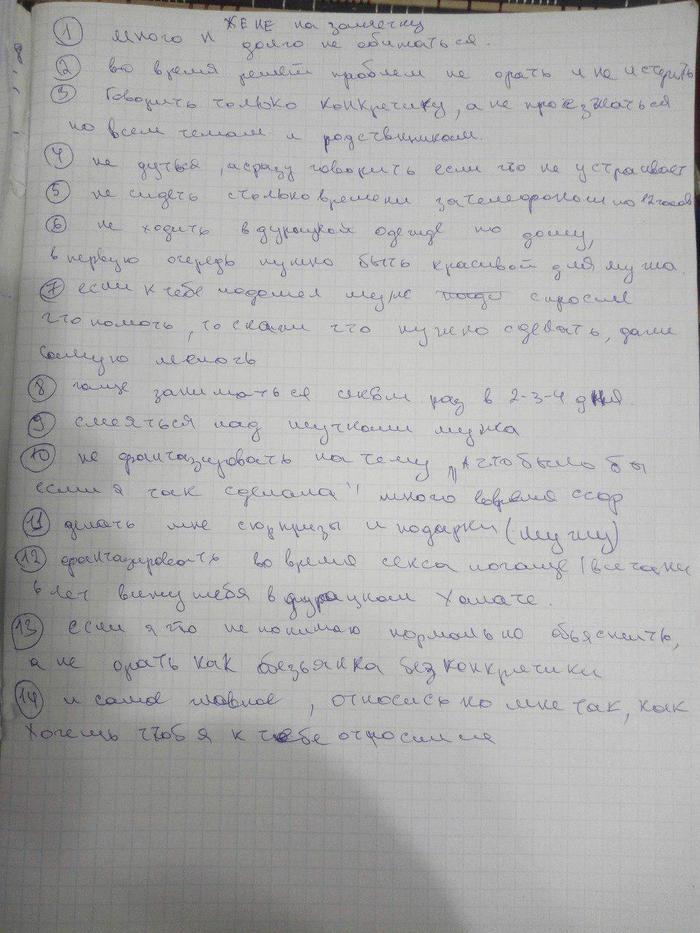 ЖЕНЕ на заметку
1 много и долго не обижаться.
2 во время решен проблем не орать и не истерить
3 Говорить только конкретику, а не проезжаться
по всем темам и родственникам.
4 не дуться, а сразу говорить если что не устраивает
5 не сидеть столько времени за телефоном по 12 часов
6 не ходить в дурацкой одежде по дому,
в первую очередь нужно быть красивой для мужа.
7 если к тебе подошел муж спросил
что помочь, то скажи что нужно сделать, даже
самую мелочь
8 чаще заниматься сексом раз в 2-3-4 дня.
9 смеяться над шутками мужа
10 не фантазировать на тему "А что было бы
если я так сделала" много время ссор
11 делать мне сюрпризы и подарки (мужу)
12 фантазировать во время секса почаще (все таки
6 лет вижу тебя в дурацком халате.
13 если я что не понимаю нормально объяснить,
а не орать как обезьянка без конкретики
14 и самое главное, относись ко мне так, как
хочешь чтоб я к тебе относился